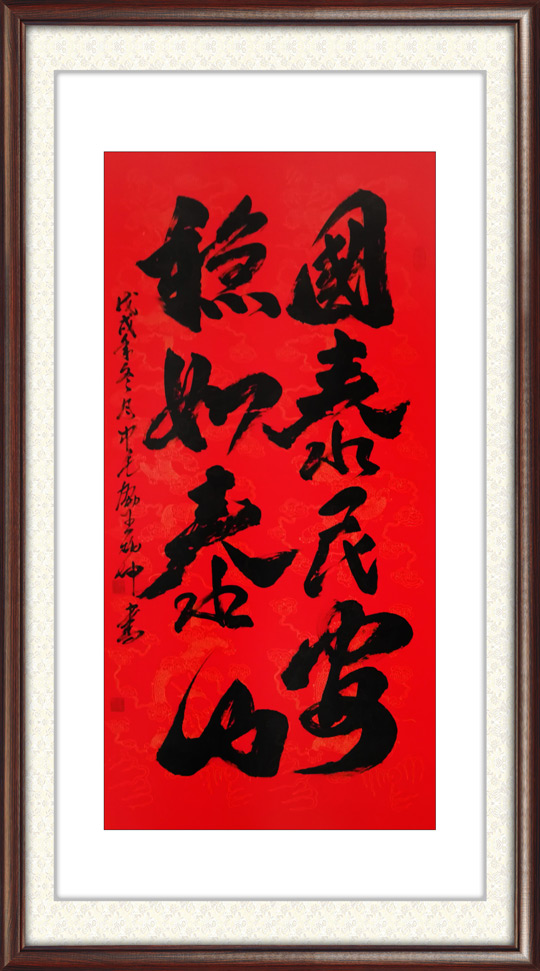 國泰民安
穩如泰山
戊戌年冬月
書